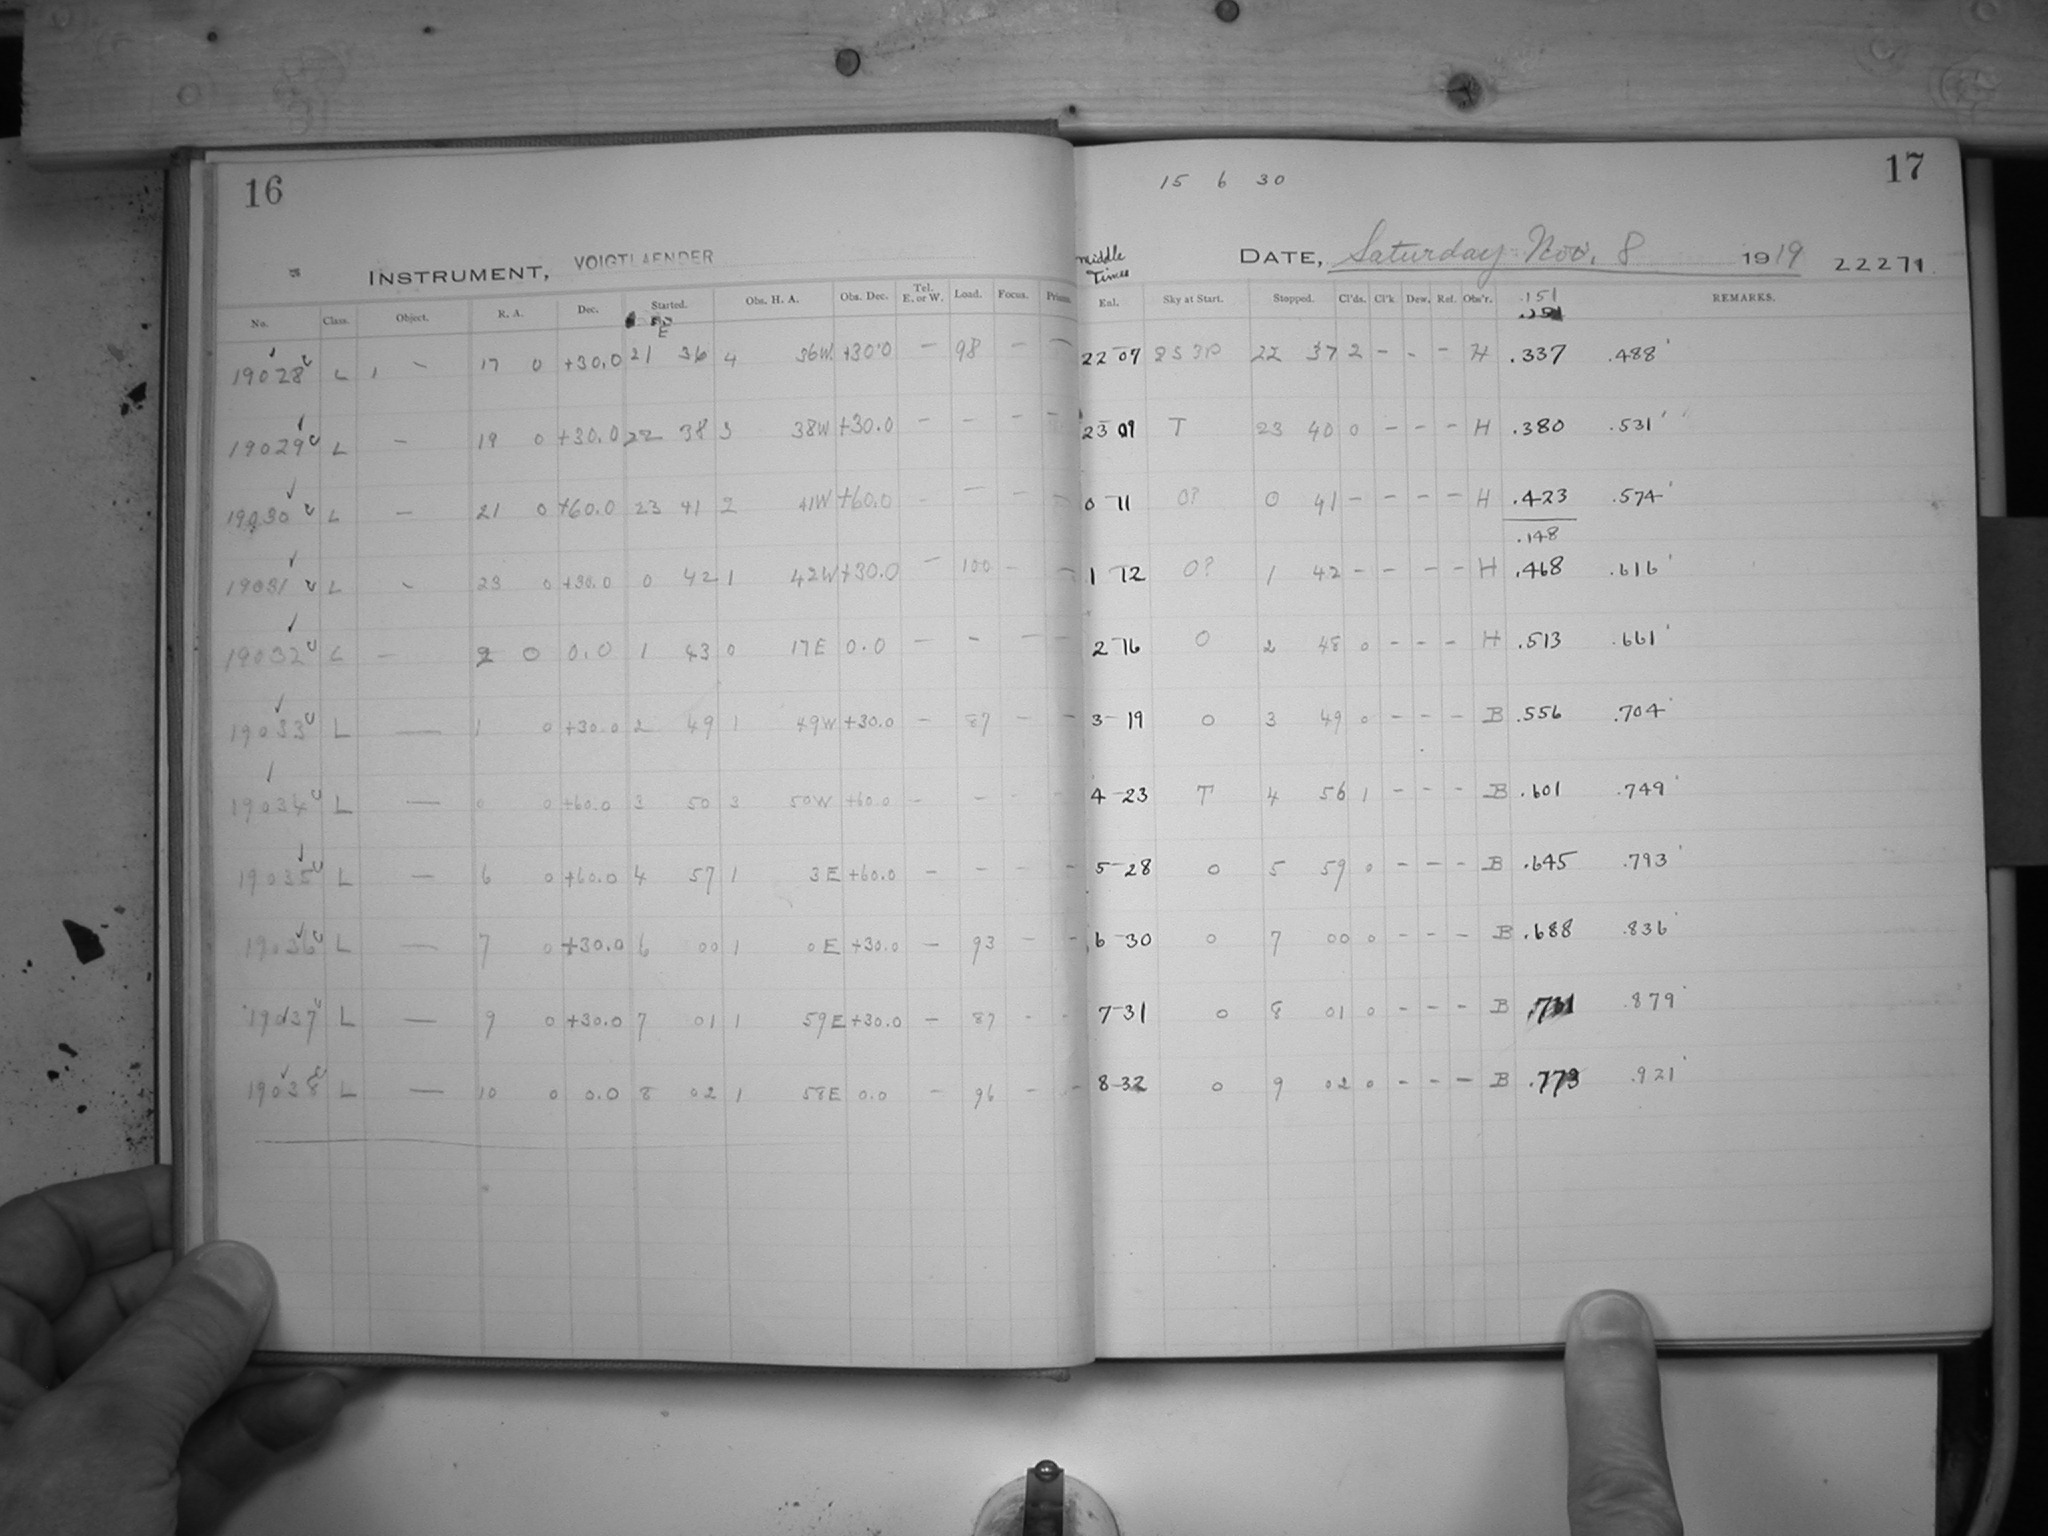 16
INSTRUMENT, VOIGTLAENDER
No. Class. Object. R. A. Dec. Started. Obs. H. A. Obs. Dec. Tel. E. or W. Load. Focus. Prisms.
E
19028 L - 17 0 +30.0 21 36 4 36W +30.0 - 98 - -
19029 L - 19 0 +30.0 22 38 3 38W +30.0 - - - -
19030 L - 21 0 +60.0 23 41 2 41W +60.0 - - - -
19031 L - 23 0 +30.0 0 42 1 42W +30.0 - 100 - -
19032 L - 2 0 0.0 1 43 0 17E 0.0 - - - -
19033 L - 1 0 +30.0 2 49 1 49W +30.0 - 87 - -
19034 L - 0 0 +60.0 3 50 3 50W +60.0 - - - -
19035 L - 6 0 +60.0 4 57 1 3E +60.0 - - - -
19036 L - 7 0 +30.0 6 00 1 0E +30.0 - 93 - -
19037 L - 9 0 +30.0 7 01 1 59E +30.0 - 87 - -
19038 L - 10 0 0.0 8 02 1 58E 0.0 - 96 - -
17
15 6 30
DATE, Saturday Nov. 8 1919 22271
Middle Times
Enl. Sky at Start. Stopped. Cl'ds. Cl'k Dew. Ref. Obs'r. .151 REMARKS.
22-07 22 37 2 - - - H .337 .488
23 09 T 23 40 0 - - - H .380 .531
0-11 0? 0 41 - - - - H .423 .574
.148
1-12 0? 1 42 - - - - H .468 .616
2-16 0 2 48 0 - - - H .513 .661
3-19 0 3 49 0 - - - B .556 .704
4-23 T 4 56 1 - - - B .601 .749
5-28 0 5 59 0 - - - B .645 .793
6-30 0 7 00 0 - - - B .688 .836
7-31 0 8 01 0 - - - B .731 .879
8-32 0 9 02 0 - - - B .773 .921